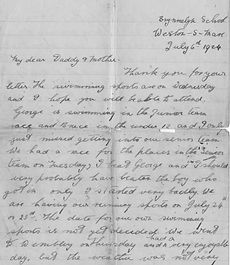 School
Weston-S-Mare
July 6th 1924
My dear Daddy & Mother
Thank you for your
letter. The swimming sports are on Wednesday
and I hope you will be able to attend.
George is swimming in the Junior team
race and I race in the under 12 and I only
just missed getting into our seniour team
We had a race for the places in the
team on Tuesday, I beat George and I should
very probably have beaten the boy who
got in only I started very badly. We
are having our running sports on July 24th
or 25th. The date for our own swimming
sports is not yet decided. We went
to Wembley on thursday and had a very enjoyable
day, but the weather was not very